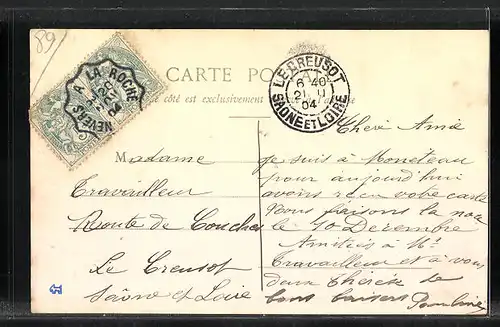 89
NEVERS A LA ROCHE
04
LE CREUSOT
6 40
21 11
04
SAONE ET LOIRE
CARTE POSTALE
Ce côté est exclusivement
Chère Amie
Madame
Je suis à Monéteau
pour aujourd'hui
Travailleur
avons reçu votre carte
Nous faisons la noce
Route de Couches
le 10 Décembre
Amitiés à Mr
Le Creusot
Travailleur et à vous
Saône et Loire
deux Chérie de
bons baisers Pauline